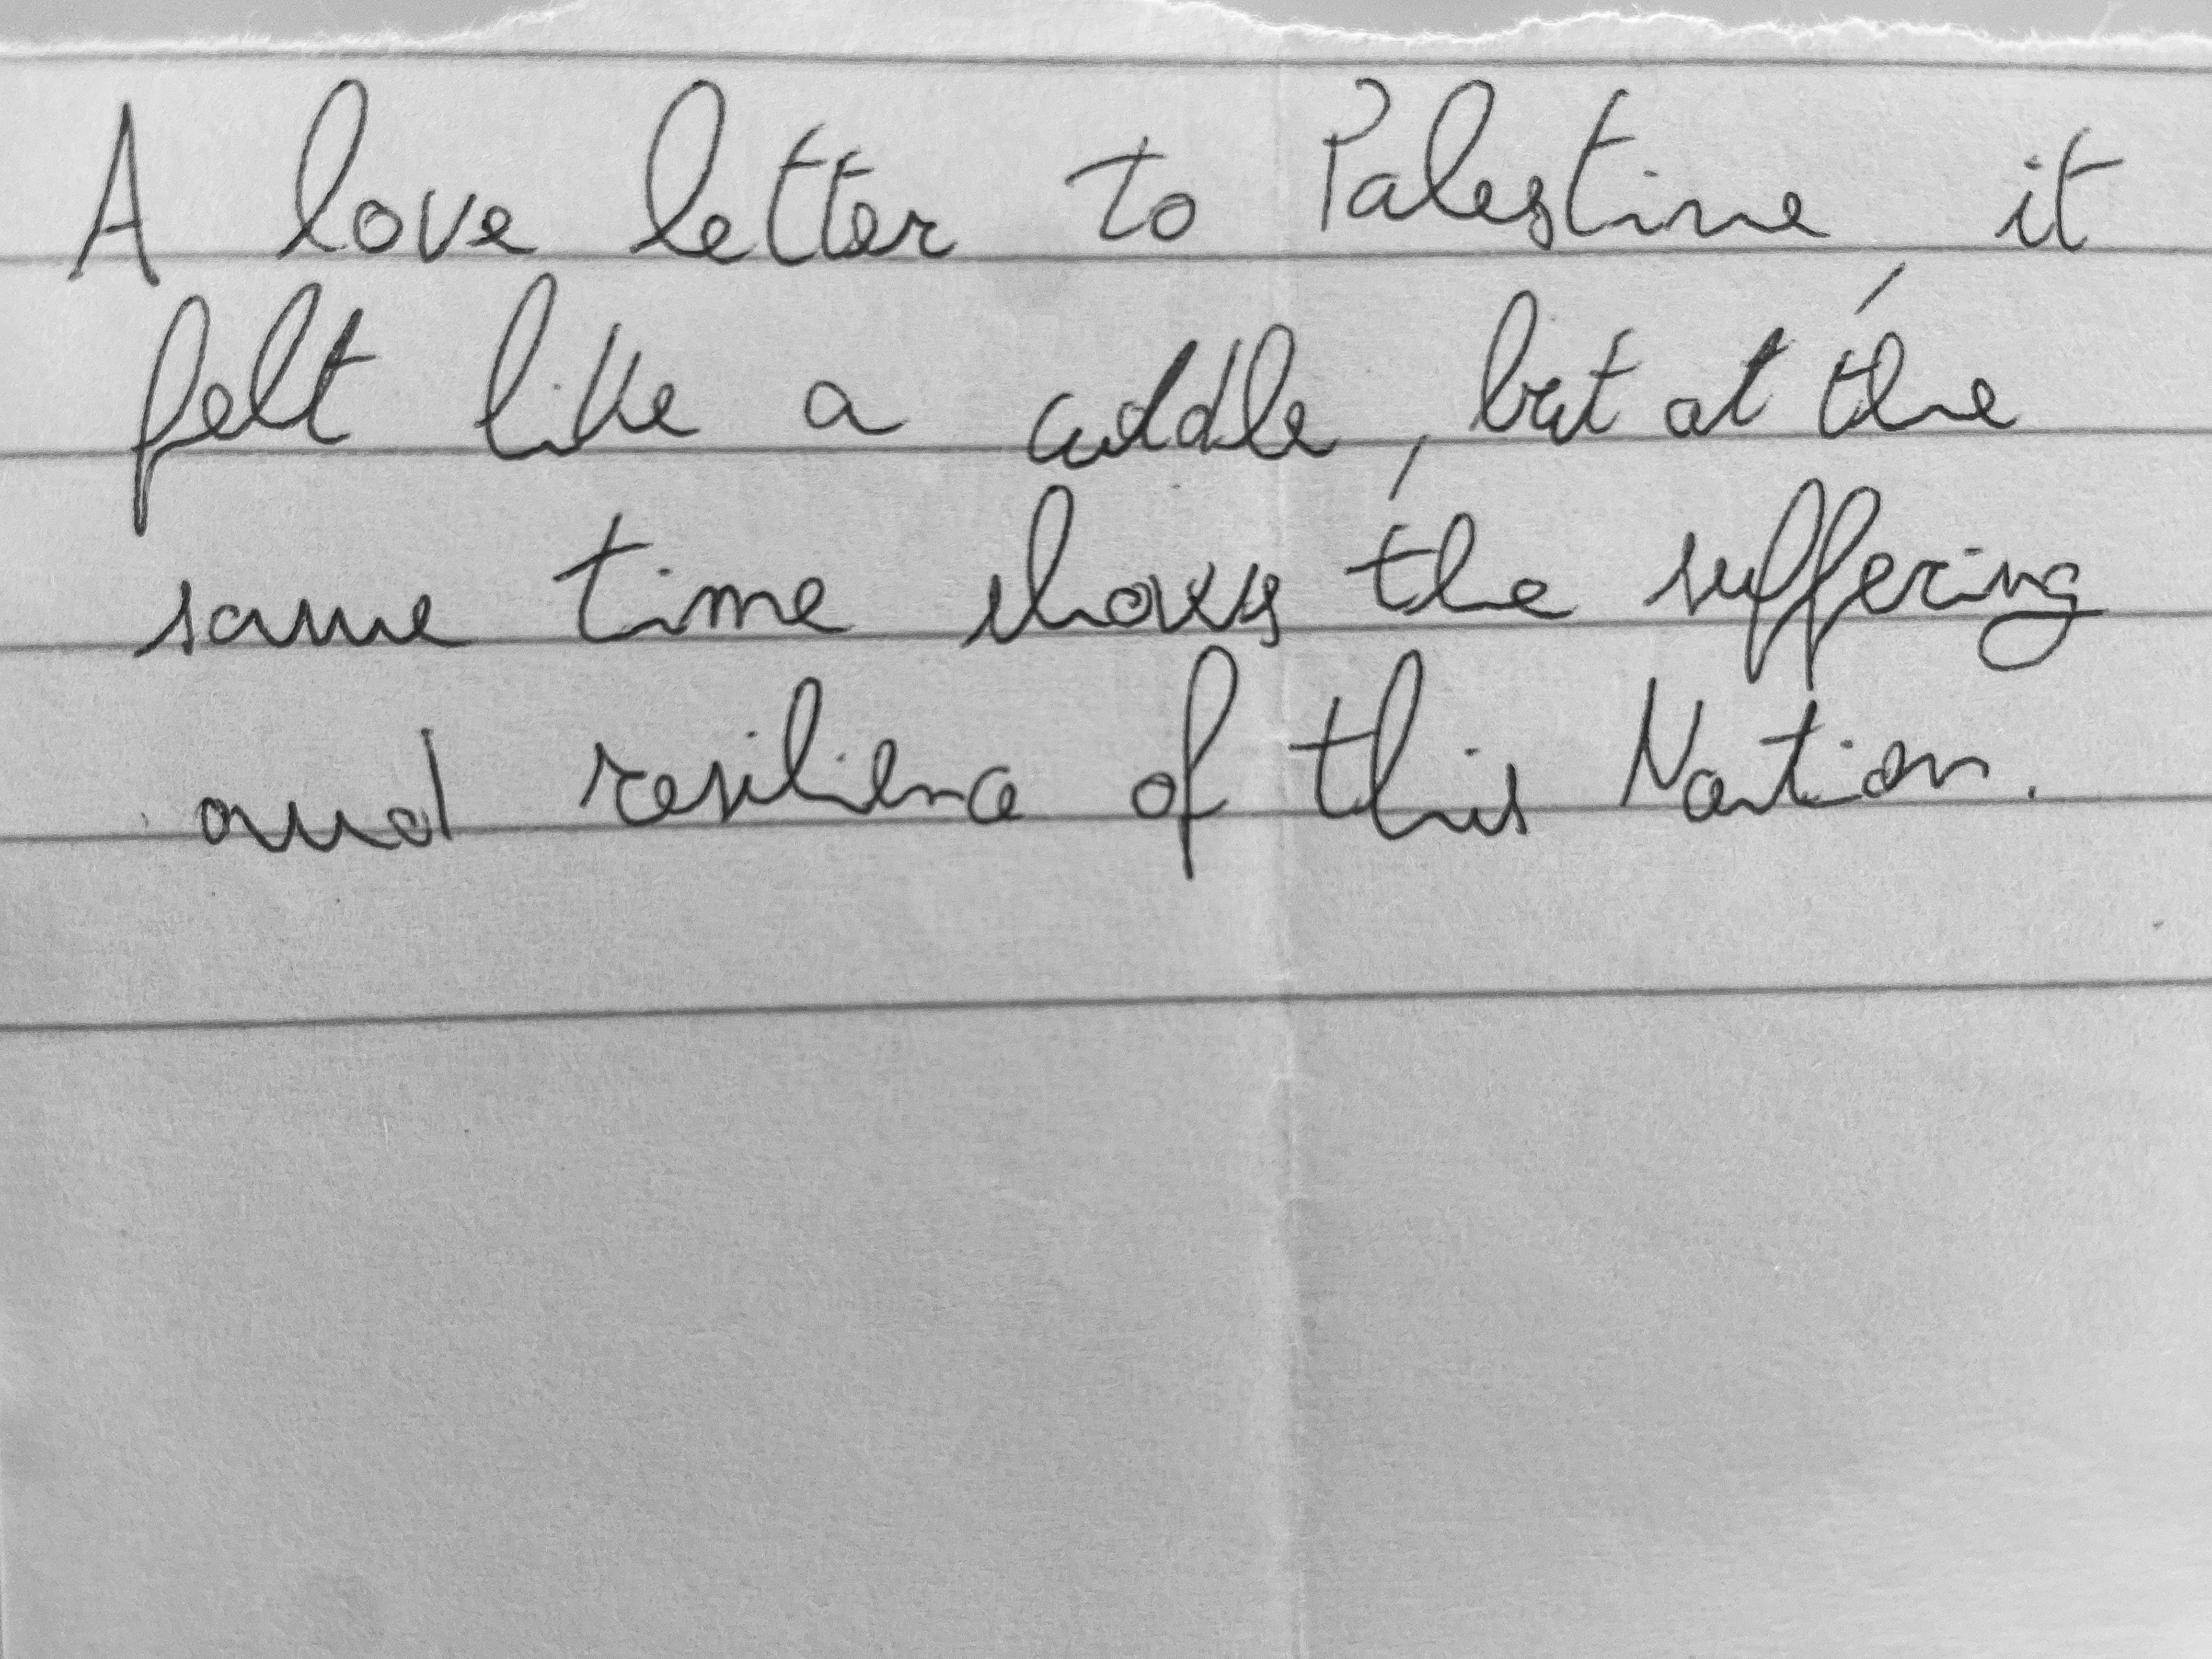 A love letter to Palestine, it
felt like a cuddle, but at the
same time shows the suffering
and resilience of this Nation.